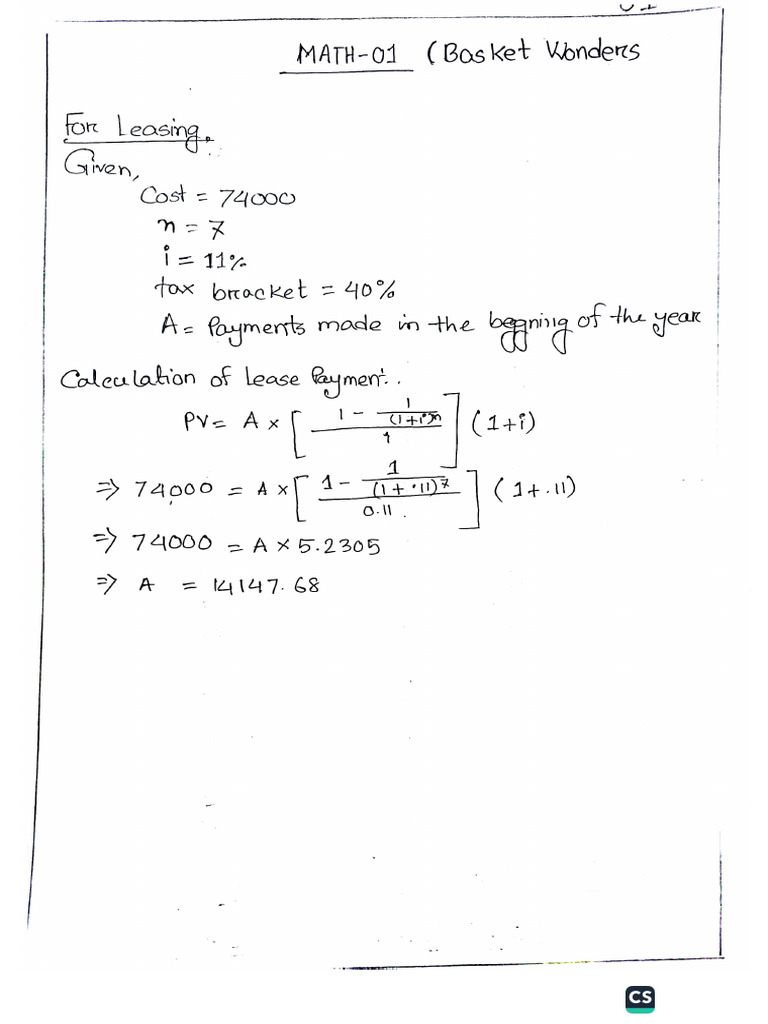 MATH-01 (Basket Wonders
For Leasing.
Given,
Cost = 74000
n = 7
i = 11%
tax bracket = 40%
A = Payments made in the beggning of the year
Calculation of Lease Payment..
PV = A × [ 1 - 1/(1+i)n / i ] (1+i)
⇒ 74000 = A × [ 1 - 1/(1+.11)7 / 0.11. ] (1+.11)
⇒ 74000 = A × 5.2305
⇒ A = 14147.68
CS